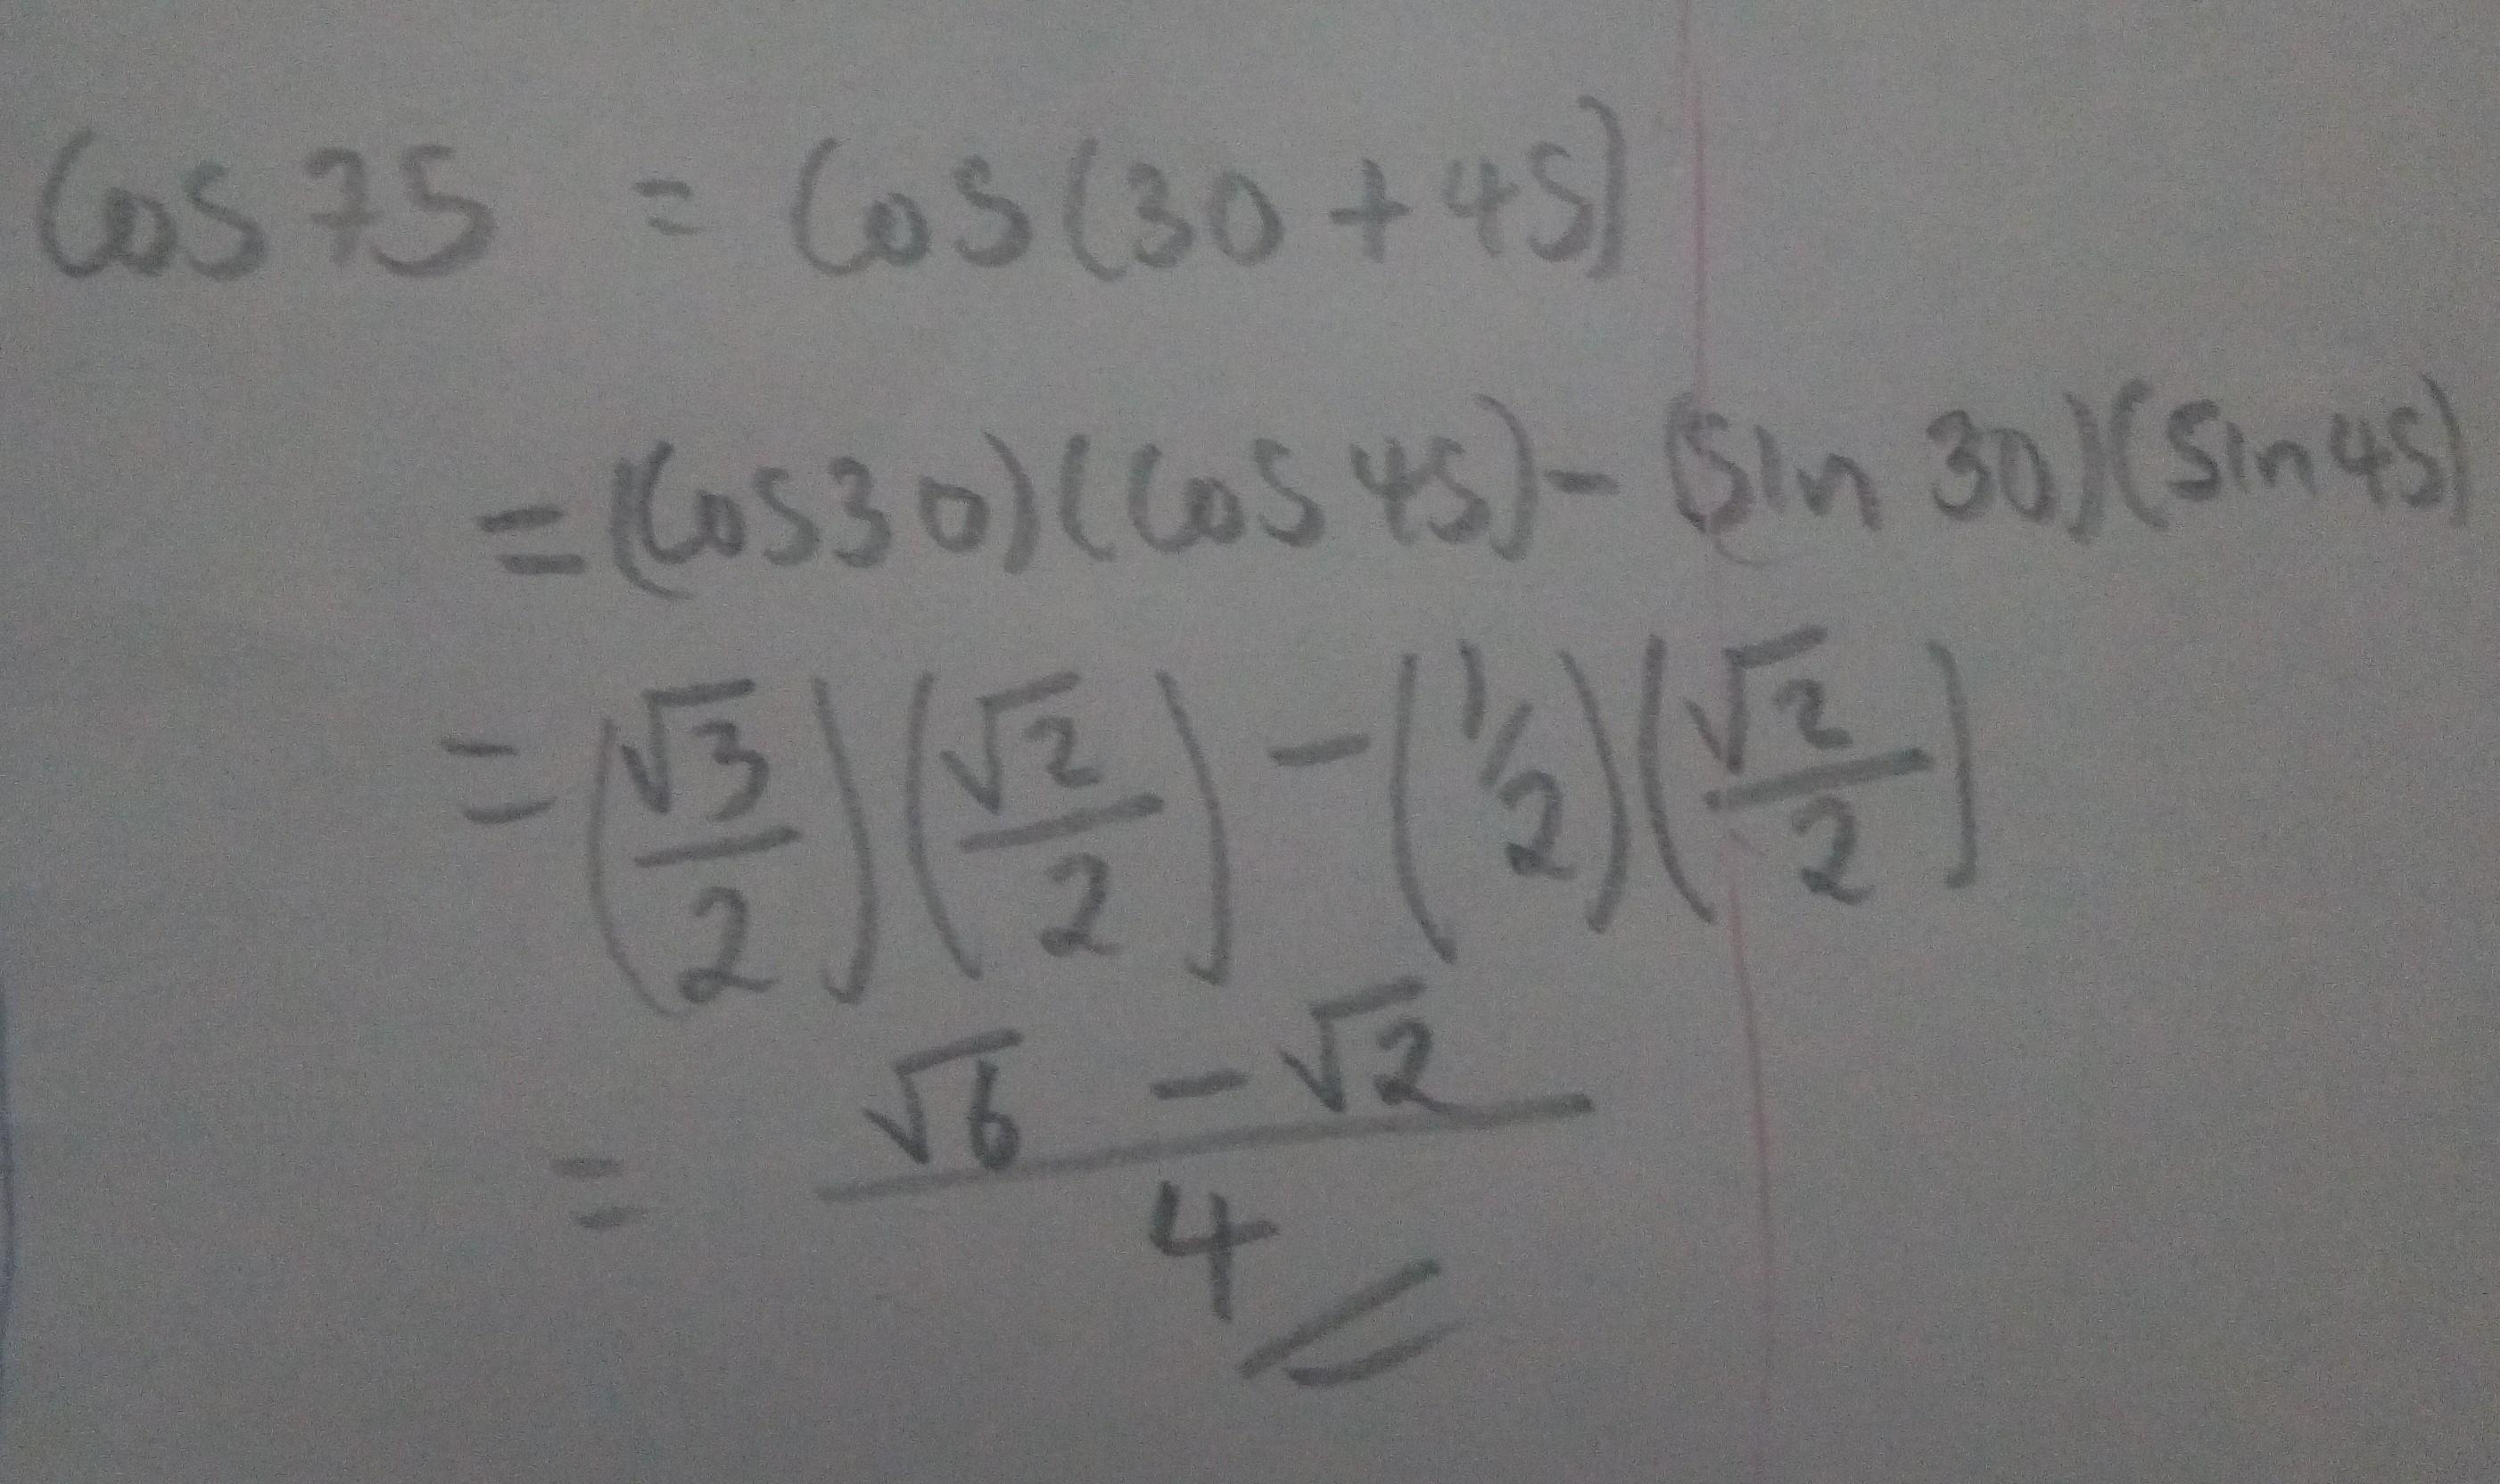 Cos 75 = Cos (30 + 45)
= (Cos 30) (Cos 45) - (Sin 30) (Sin 45)
= (√3/2) (√2/2) - (1/2) (√2/2)
= (√6 - √2)/4